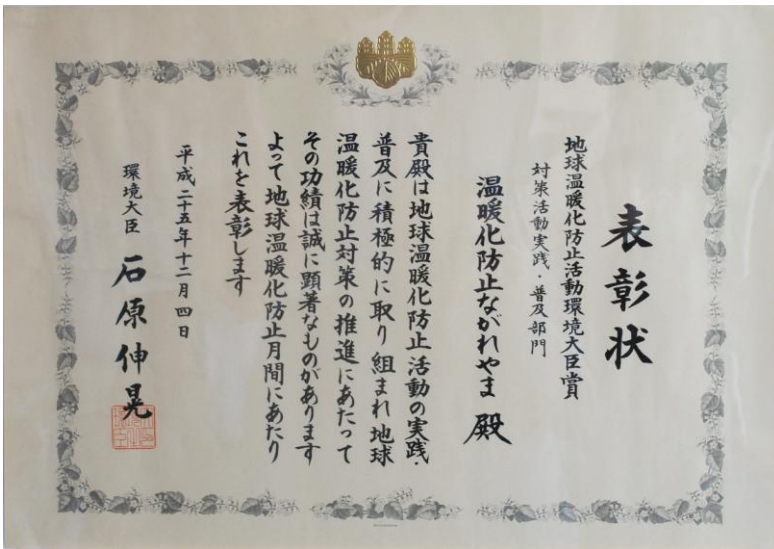 表彰状
地球温暖化防止活動環境大臣賞
対策活動実践・普及部門
温暖化防止ながれやま 殿
貴殿は地球温暖化防止活動の実践・
普及に積極的に取り組まれ地球
温暖化防止対策の推進にあたって
その功績は誠に顕著なものがあります
よって地球温暖化防止月間にあたり
これを表彰します
平成二十五年十二月四日
環境大臣 石原伸晃